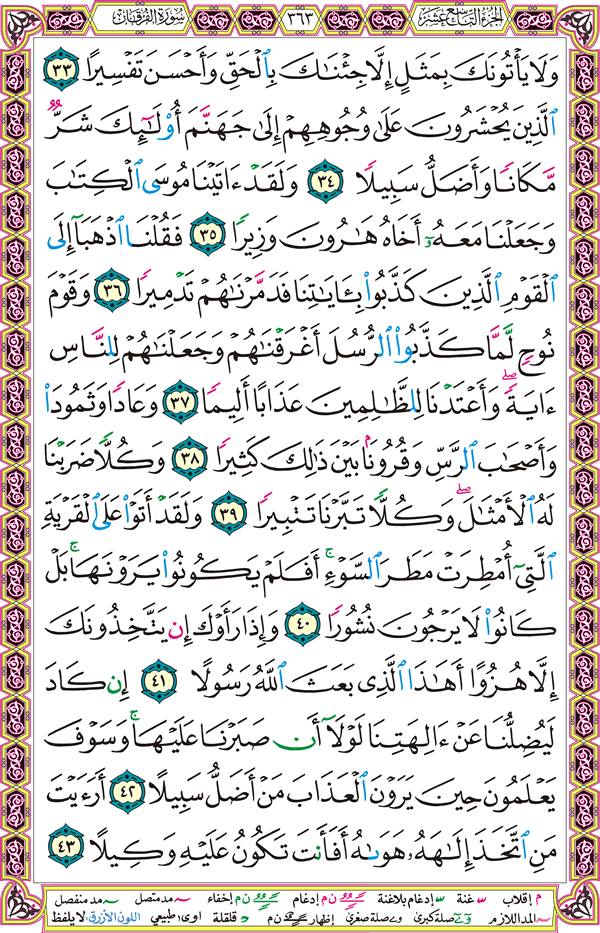 الجزء التاسع عشر ٣٦٣ سورة الفرقان
وَلَا يَأْتُونَكَ بِمَثَلٍ إِلَّا جِئْنَاكَ بِالْحَقِّ وَأَحْسَنَ تَفْسِيرًا ٣٣
الَّذِينَ يُحْشَرُونَ عَلَىٰ وُجُوهِهِمْ إِلَىٰ جَهَنَّمَ أُوْلَٰئِكَ شَرٌّ
مَّكَانًا وَأَضَلُّ سَبِيلًا ٣٤ وَلَقَدْ ءَاتَيْنَا مُوسَى الْكِتَٰبَ
وَجَعَلْنَا مَعَهُۥٓ أَخَاهُ هَٰرُونَ وَزِيرًا ٣٥ فَقُلْنَا اذْهَبَآ إِلَى
الْقَوْمِ الَّذِينَ كَذَّبُوا بِـَٔايَٰتِنَا فَدَمَّرْنَٰهُمْ تَدْمِيرًا ٣٦ وَقَوْمَ
نُوحٍ لَّمَّا كَذَّبُوا الرُّسُلَ أَغْرَقْنَٰهُمْ وَجَعَلْنَٰهُمْ لِلنَّاسِ
ءَايَةً ۖ وَأَعْتَدْنَا لِلظَّٰلِمِينَ عَذَابًا أَلِيمًا ٣٧ وَعَادًا وَثَمُودَا
وَأَصْحَٰبَ الرَّسِّ وَقُرُونًۢا بَيْنَ ذَٰلِكَ كَثِيرًا ٣٨ وَكُلًّا ضَرَبْنَا
لَهُ الْأَمْثَٰلَ ۖ وَكُلًّا تَبَّرْنَا تَتْبِيرًا ٣٩ وَلَقَدْ أَتَوْا عَلَى الْقَرْيَةِ
الَّتِيٓ أُمْطِرَتْ مَطَرَ السَّوْءِ ۚ أَفَلَمْ يَكُونُوا يَرَوْنَهَا ۚ بَلْ
كَانُوا لَا يَرْجُونَ نُشُورًا ٤٠ وَإِذَا رَأَوْكَ إِن يَتَّخِذُونَكَ
إِلَّا هُزُوًا أَهَٰذَا الَّذِي بَعَثَ اللَّهُ رَسُولًا ٤١ إِن كَادَ
لَيُضِلُّنَا عَنْ ءَالِهَتِنَا لَوْلَآ أَن صَبَرْنَا عَلَيْهَا ۚ وَسَوْفَ
يَعْلَمُونَ حِينَ يَرَوْنَ الْعَذَابَ مَنْ أَضَلُّ سَبِيلًا ٤٢ أَرَءَيْتَ
مَنِ اتَّخَذَ إِلَٰهَهُۥ هَوَىٰهُ أَفَأَنتَ تَكُونُ عَلَيْهِ وَكِيلًا ٤٣
م إقلاب غنة إدغام بلاغنة ن م إدغام ن م إخفاء مد متصل مد منفصل
المد اللازم صلة كبرى صلة صغرى إظهار ن م قلقلة اوى طبيعي اللون الأزرق: لا يلفظ